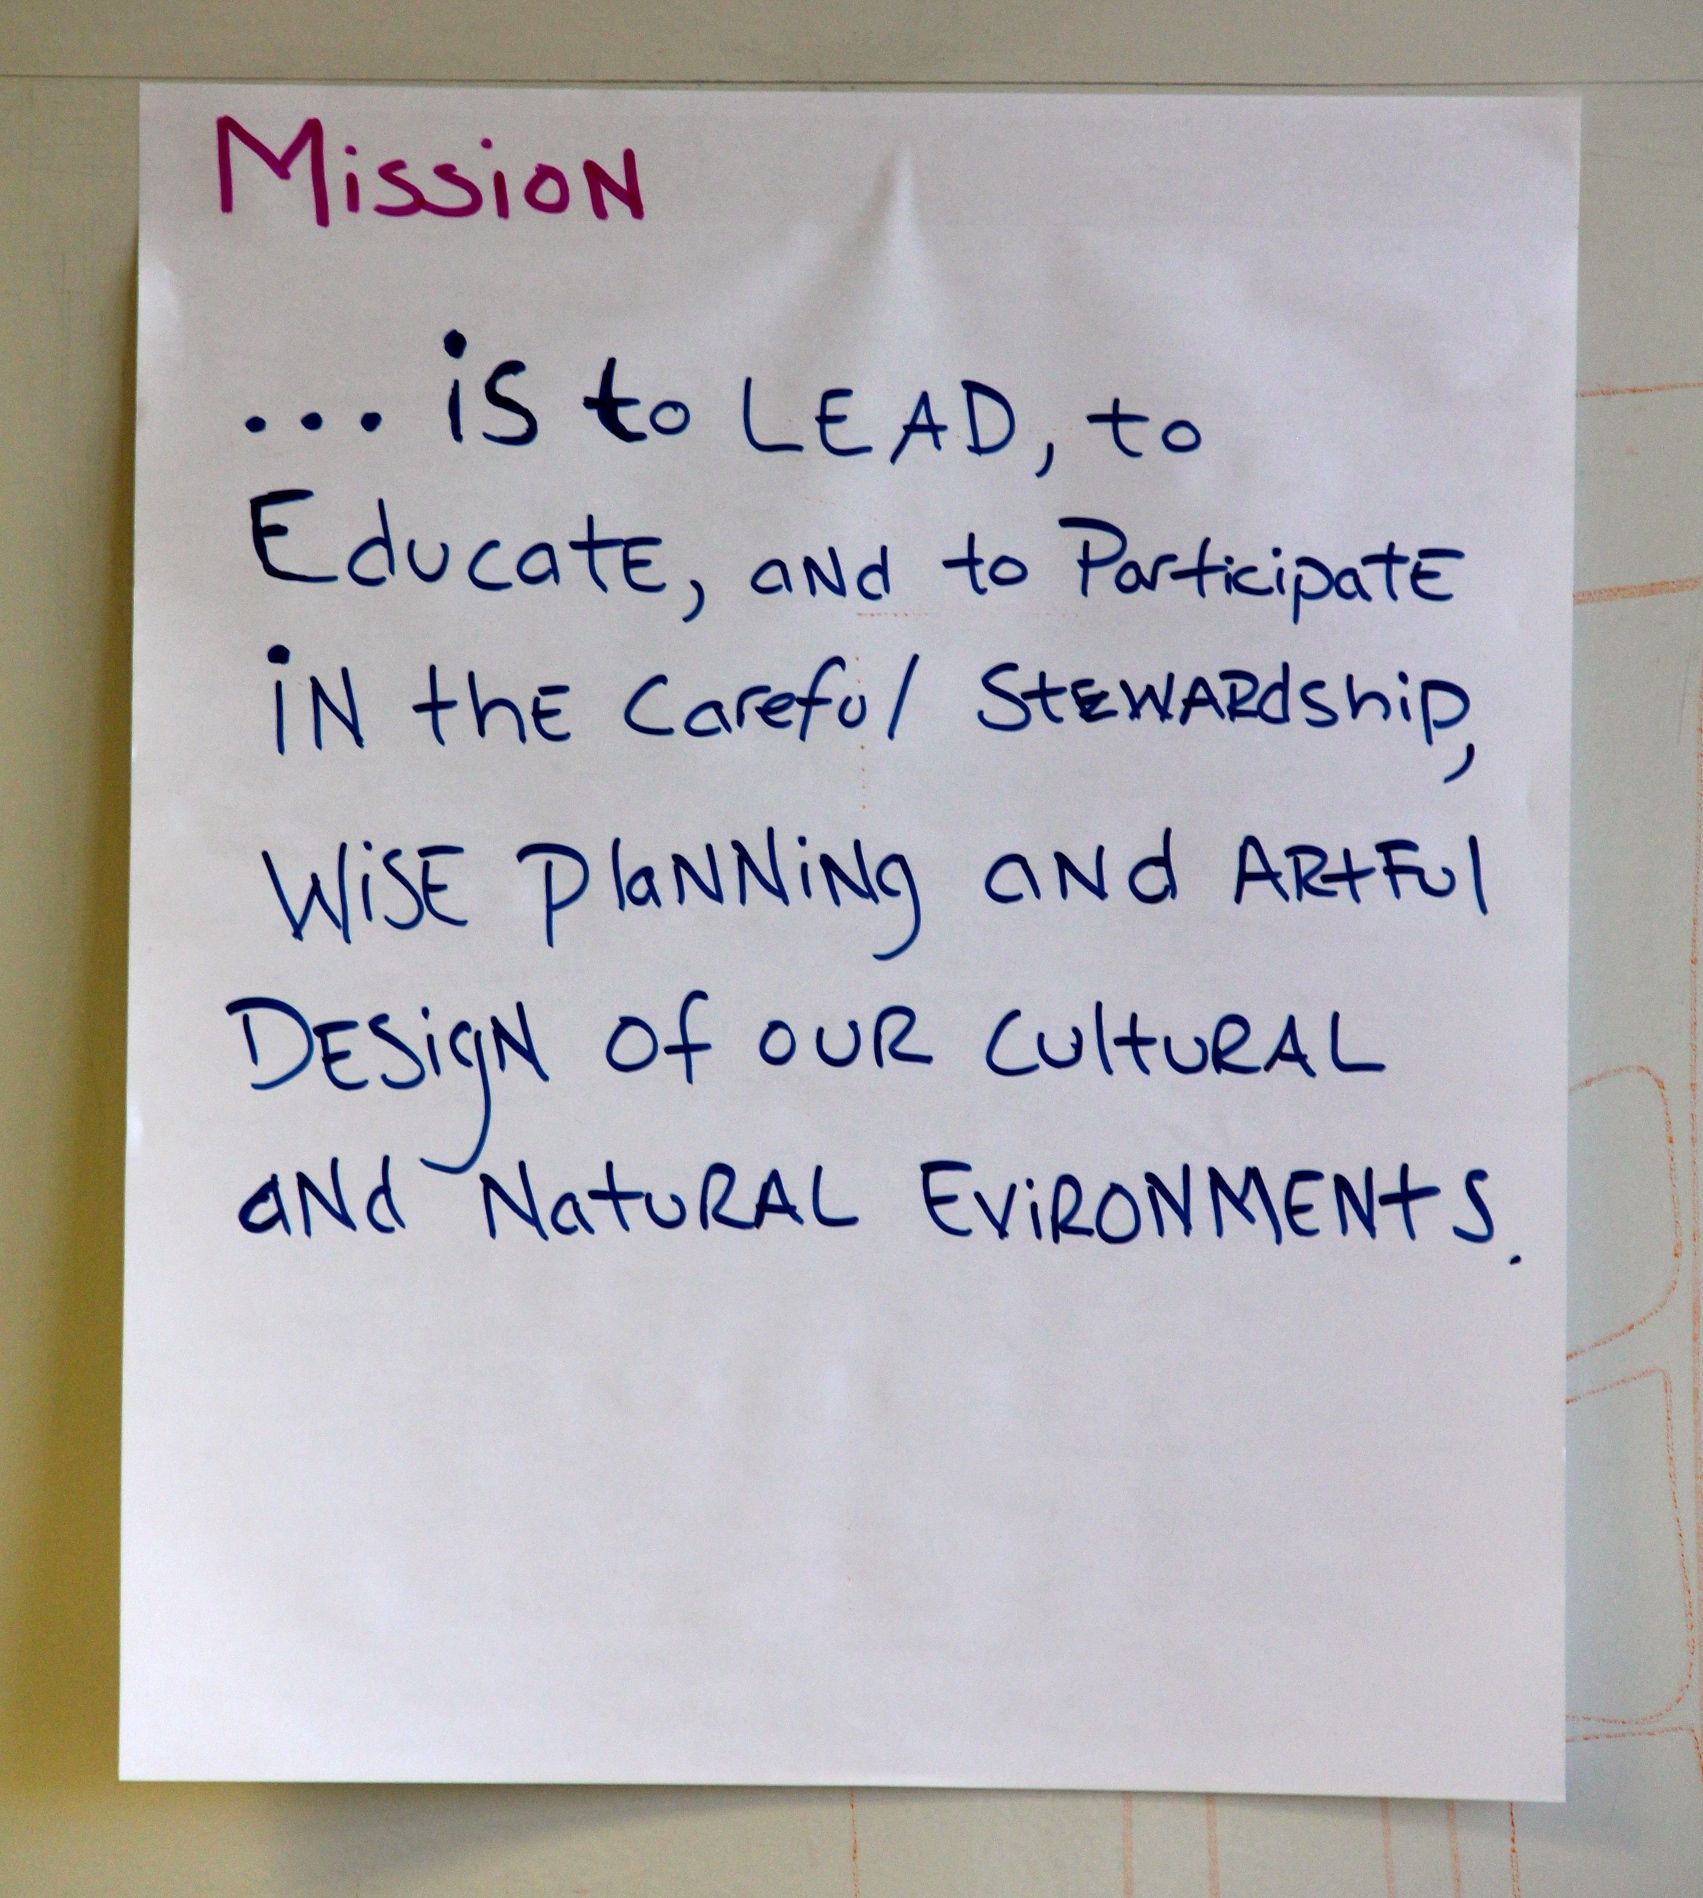 Mission
... is to LEAD, to
Educate, and to Participate
in the Careful Stewardship,
Wise Planning and Artful
Design of our Cultural
and Natural Evironments.